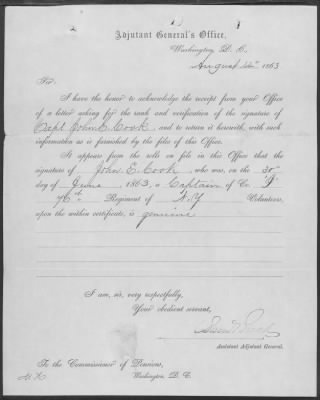 Adjutant General's Office,
Washington, D. C.
August 1863
Sir:
I have the honor to acknowledge the receipt from your Office
of a letter asking for the rank and verification of the signature of
Capt John E. Cook, and to return it herewith, with such
information as is furnished by the files of this Office.
It appears from the rolls on file in this Office that the
signature of John E. Cook, who was, on the 30
day of June 1863, a Captain of Co.
76th Regiment of N.Y. Volunteers,
upon the within certificate, is genuine
I am, sir, very respectfully,
Your obedient servant,
Assistant Adjutant General.
To the Commissioner of Pensions,
Washington, D. C.